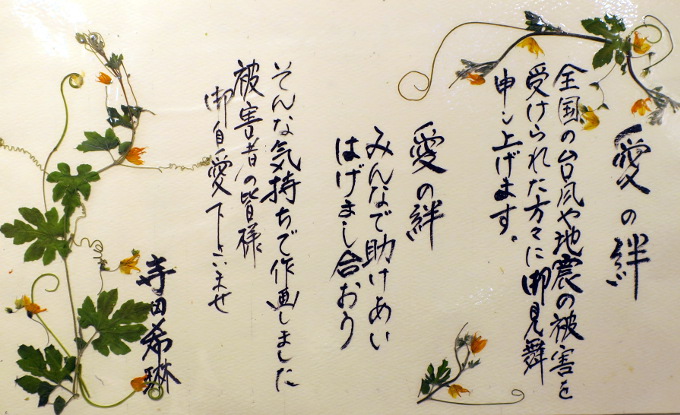 愛の絆
全国の台風や地震の被害を
受けられた方々に御見舞
申し上げます。
愛の絆
みんなで助けあい
はげまし合おう
そんな気持ちで作画しました
被害者の皆様
御自愛下さいませ
寺田希琳